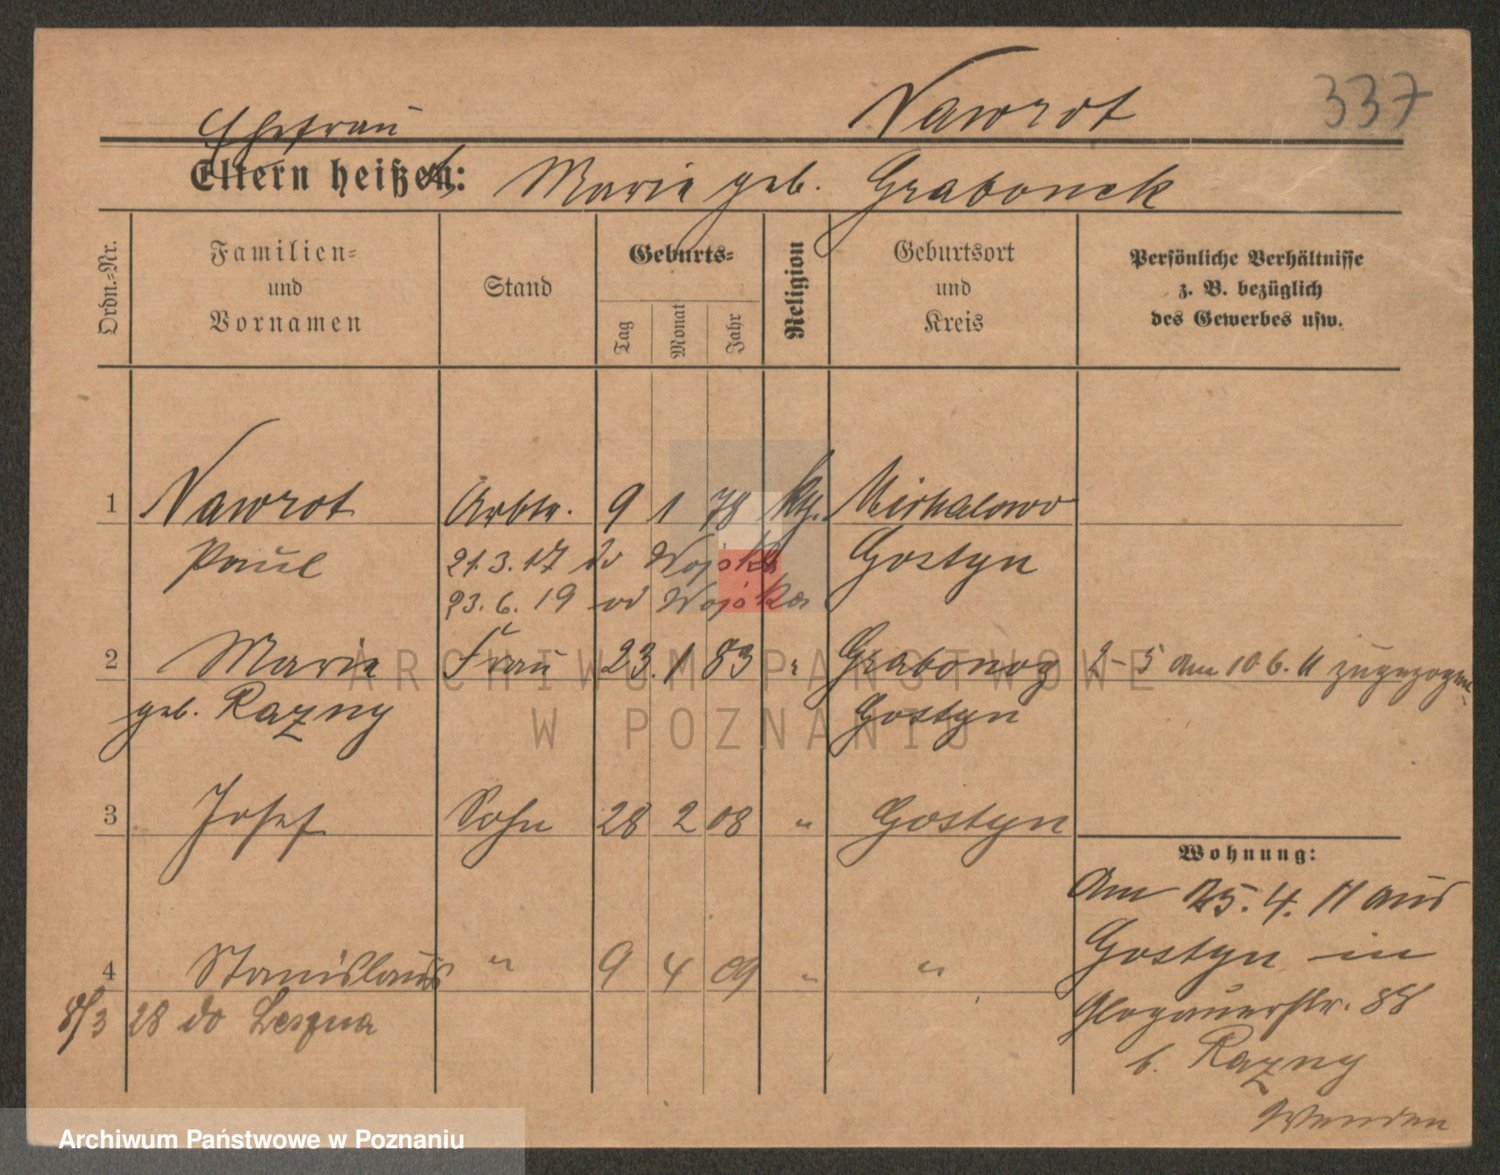 Nawrot 337
Ehefrau
Eltern heißen: Marie geb. Grabonek
Ordn.-Nr. Familien- und Vornamen Stand Geburts- Tag Monat Jahr Religion Geburtsort und Kreis Persönliche Verhältnisse z. B. bezüglich des Gewerbes usw.
1 Nawrot Arbtr. 9 1 78 kth. Michalowo
Paul 21.3.17 do Wojska Gostyn
23.6.19 od Wojska
2 Marie Frau 23. 1 83 " Grabonog 2-5 am 10 6. 11 zugezogen
geb. Razny Gostyn
3 Josef Sohn 28 2 08 " Gostyn
Wohnung:
Am 25. 4. 11 aus
4 Stanislaus " 9 4 09 " " Gostyn in
8/3 28 do Leszna Glogauerstr. 88
b. Razny
Wenden
ARCHIWUM PAŃSTWOWE
W POZNANIU
Archiwum Państwowe w Poznaniu